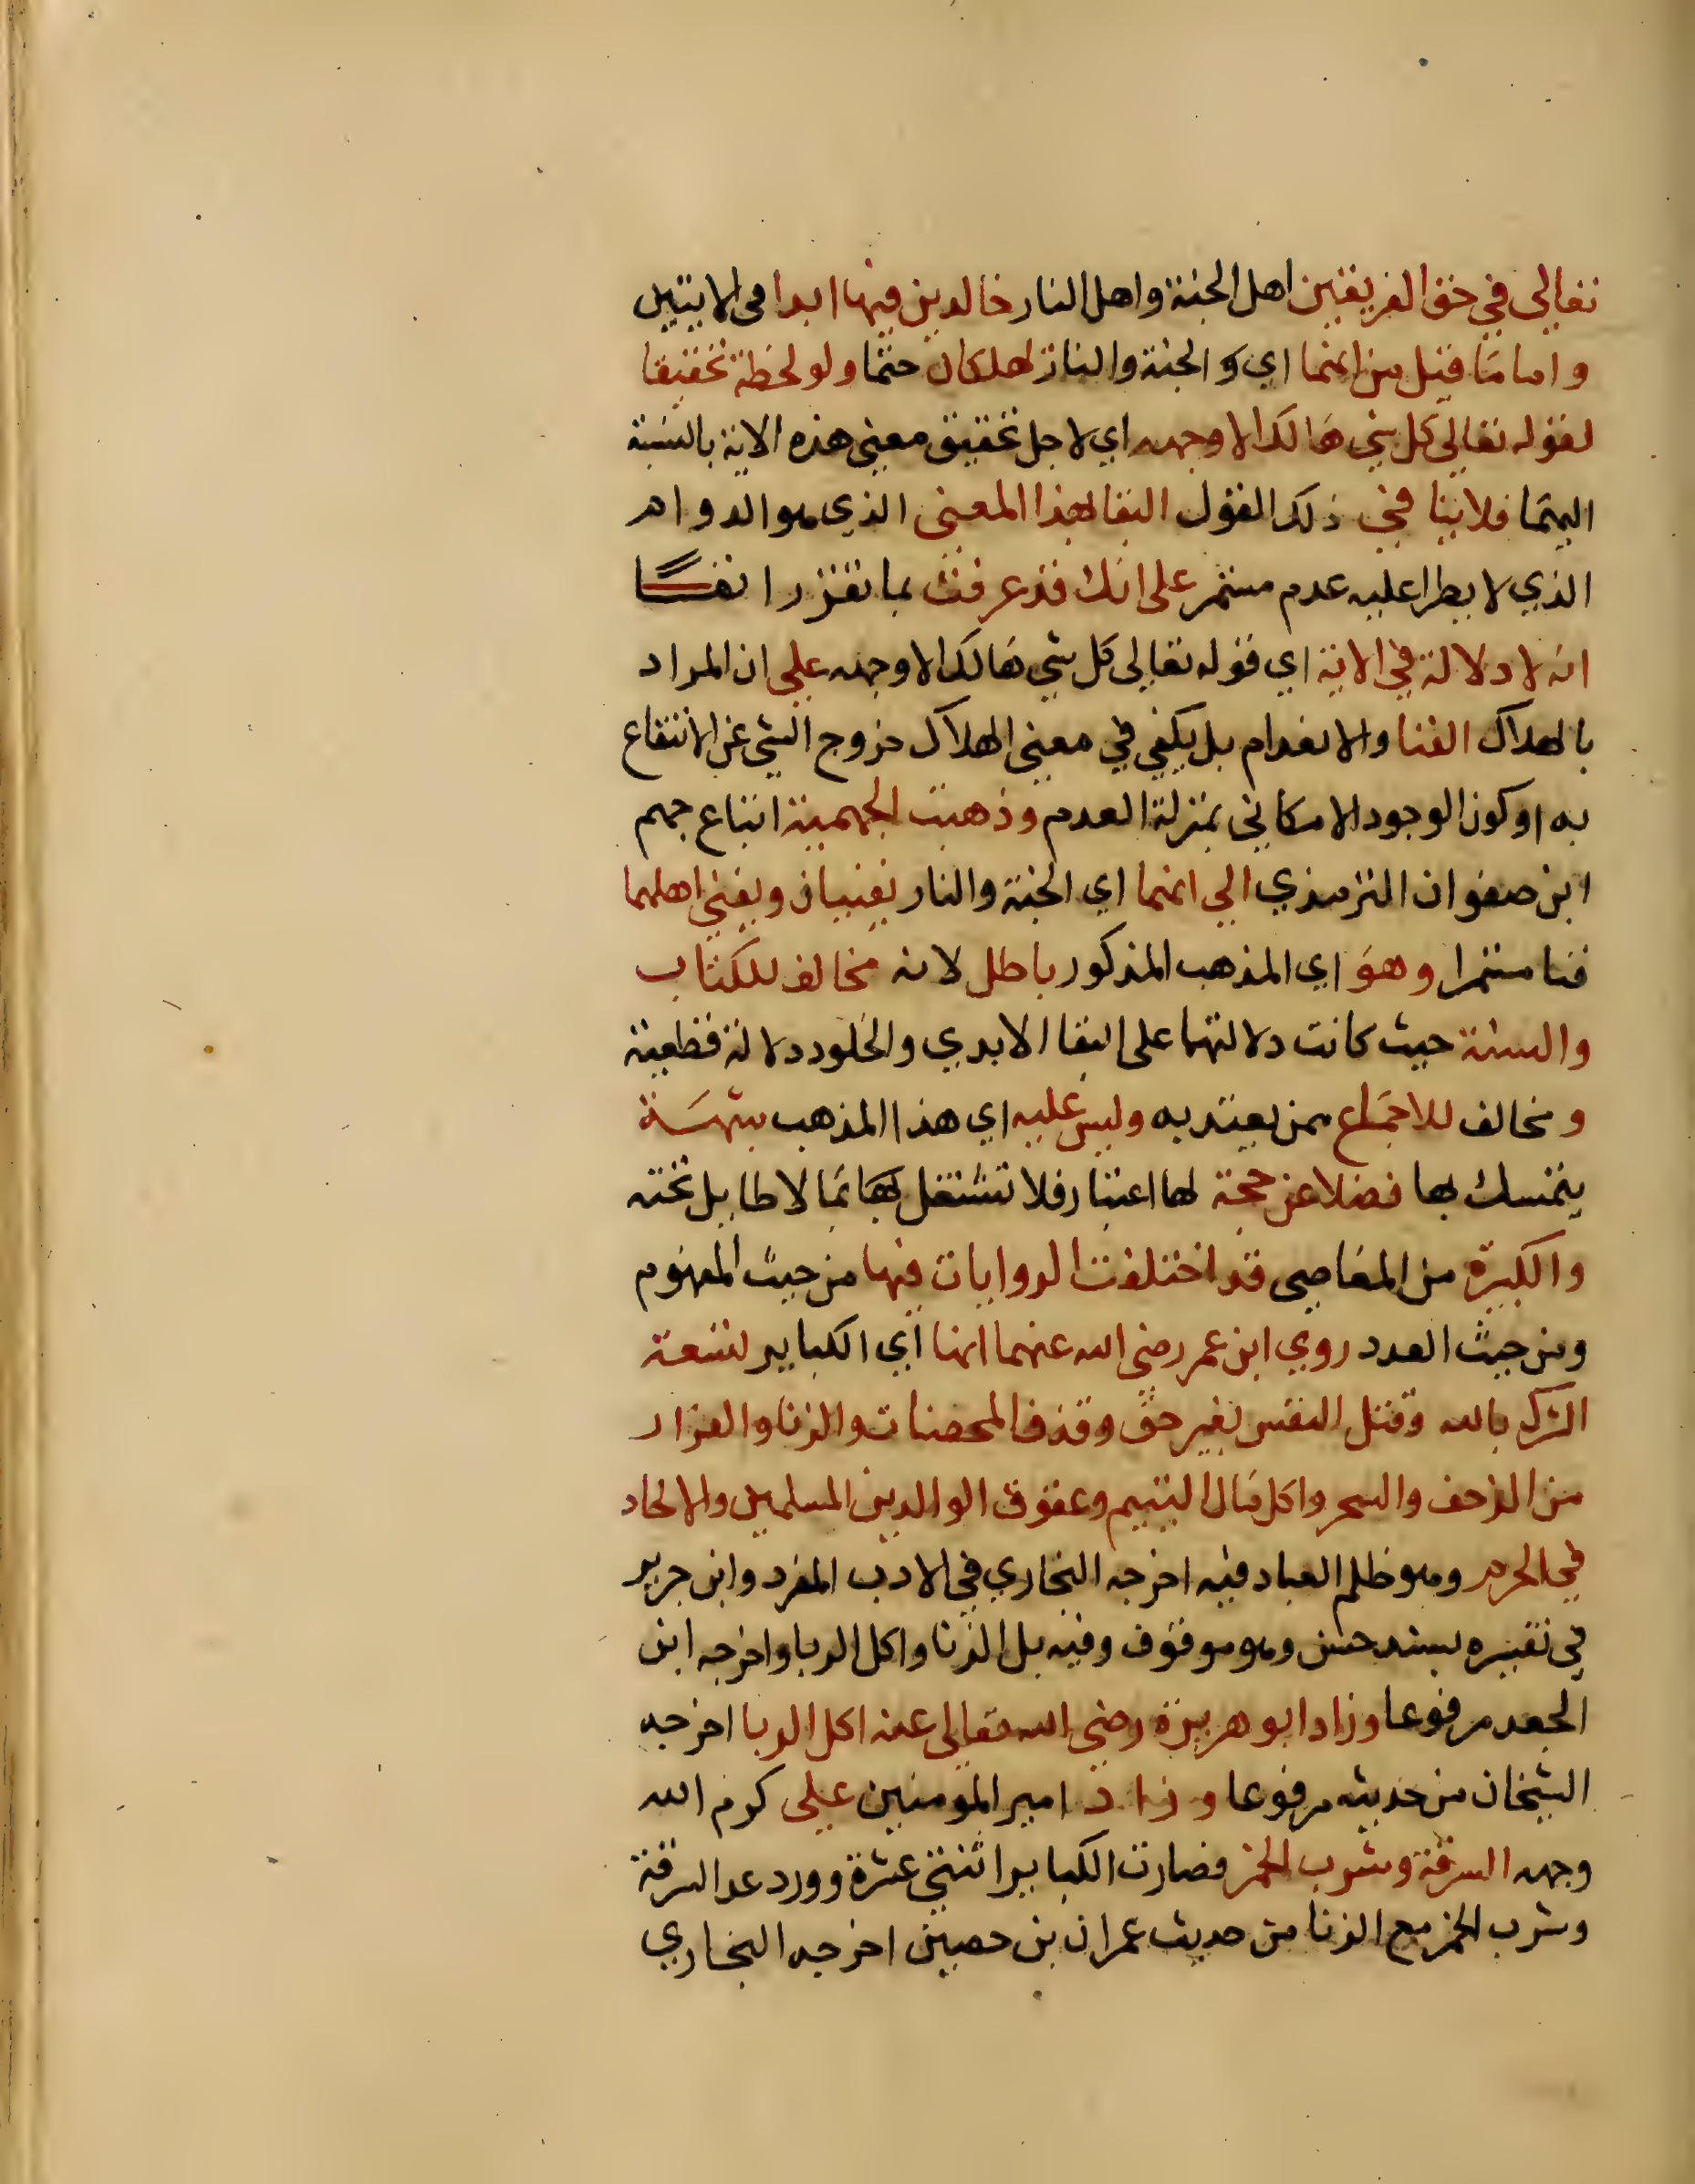 تعالى في حق الفريقين اهل الجنة واهل النار خالدين فيها ابدا في الايتين
واما ما قيل من انهما اي و الجنة والنار تهلكان حتما ولو لحظة تحقيقا
لقوله تعالى كل شي هالك الا وجهه اي لاجل تحقيق معنى هذه الاية بالنسبة
اليهما فلاينافي ذلك القول البقا لهذا المعنى الذي هو الدوام
الذي لا يطرا عليه عدم مستمر على انك قد عرفت بما تقرر انفـــا
انه لا دلالة في الاية اي قوله تعالى كل شي هالك الا وجهه على ان المراد
بالهلاك الفنا والانعدام بل يكفي في معنى الهلاك خروج الشي عن الانتفاع
به او كون الوجود الامكاني بمنزلة العدم وذهبت الجهمية اتباع جهم
ابن صفوان الترمذي الي انهما اي الجنة والنار يفنيان ويفنى اهلهما
فنا مستمرا وهو اي المذهب المذكور باطل لانه مخالف للكتاب
والسنة حيث كانت دلالتهما على البقا الابدي والخلود دلالة قطعية
ومخالف للاجماع ممن يعتد به وليس عليه اي هذا المذهب شبهة
يتمسك بها فضلا عن حجة لها اعتبار فلا تشتغل بها بما لا طايل تحته
والكبيرة من المعاصي قد اختلفت الروايات فيها من حيث المفهوم
ومن حيث العدد روي ابن عمر رضي الله عنهما انها اي الكباير تسعة
الشرك بالله وقتل النفس بغير حق وقذف المحصنات والزنا والفرار
من الزحف والسحر واكل مال اليتيم وعقوق الوالدين المسلمين والالحاد
في الحرم وهو ظلم العباد فيه اخرجه البخاري في الادب المفرد وابن جرير
في تفسيره بسند حسن وهو موقوف وفيه بل الزنا واكل الربا واخرجه ابن
الجعد مرفوعا وزاد ابو هريرة رضي الله تعالى عنه اكل الربا اخرجه
الشيخان من حديثه مرفوعا وزاد امير المومنين علي كرم الله
وجهه السرقة وشرب الخمر فصارت الكباير اثنتي عشرة وورد عد السرقة
وشرب الخمر مع الزنا من حديث عمران بن حصين اخرجه البخاري